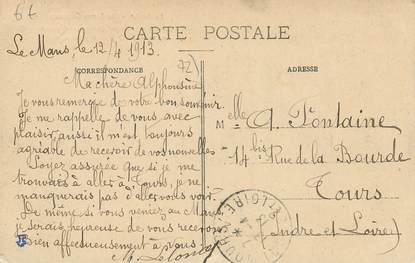 66
CARTE POSTALE
Le Mans, le 12/4 1913.
72
CORRESPONDANCE
ADRESSE
Ma chère Alphonsine
Je vous remercie de votre bon souvenir.
Je me rappelle de vous avec
plaisir, aussi il m'est toujours
agréable de recevoir de vos nouvelles
Soyez assurée que si je me
trouvais à aller à Tours, je ne
manquerais pas d'aller vous voir.
De même si vous veniez au Mans
je serais heureuse de vous recevoir
Bien affectueusement à vous
Melle A. Fontaine
14 bis Rue de la Bourde
Tours
(Indre et Loire)